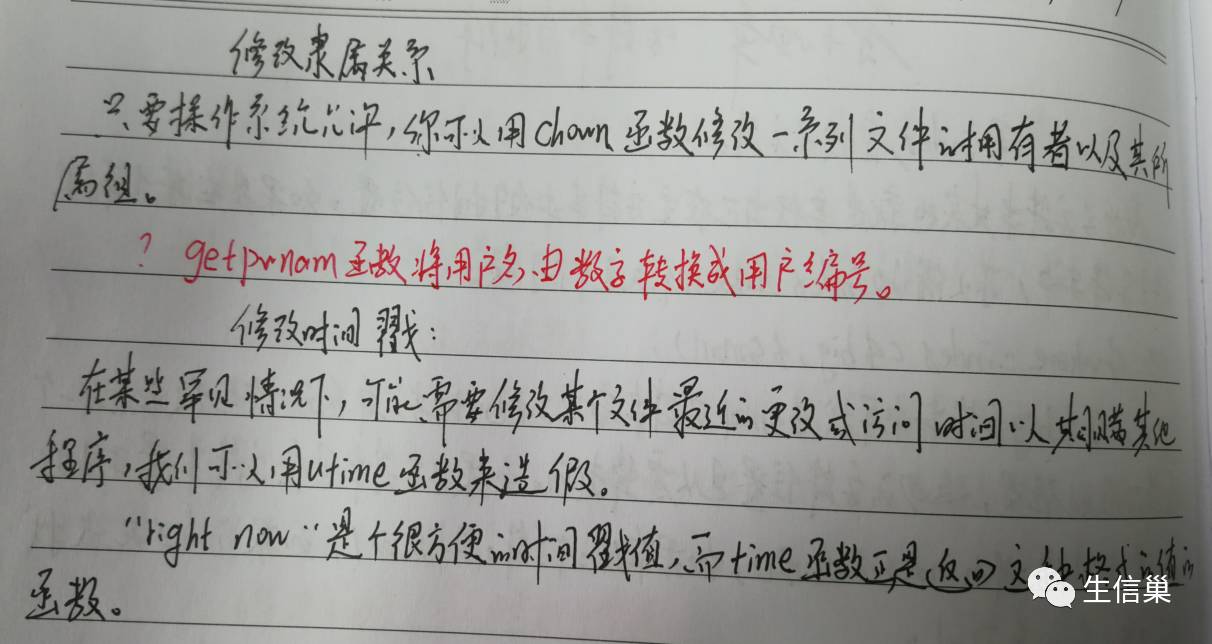 修改隶属关系
只要操作系统允许,你可以用chown函数修改一系列文件的拥有者以及其所
属组。
? getpwnam函数将用户名,由数字转换成用户编号。
修改时间戳:
在某些罕见情况下,可能需要修改某个文件最近的更改或访问时间以期瞒其他
程序,我们可以用utime函数来造假。
"right now"是个很方便的时间戳值,而time函数正是返回文件格式的值的
函数。
生信巢